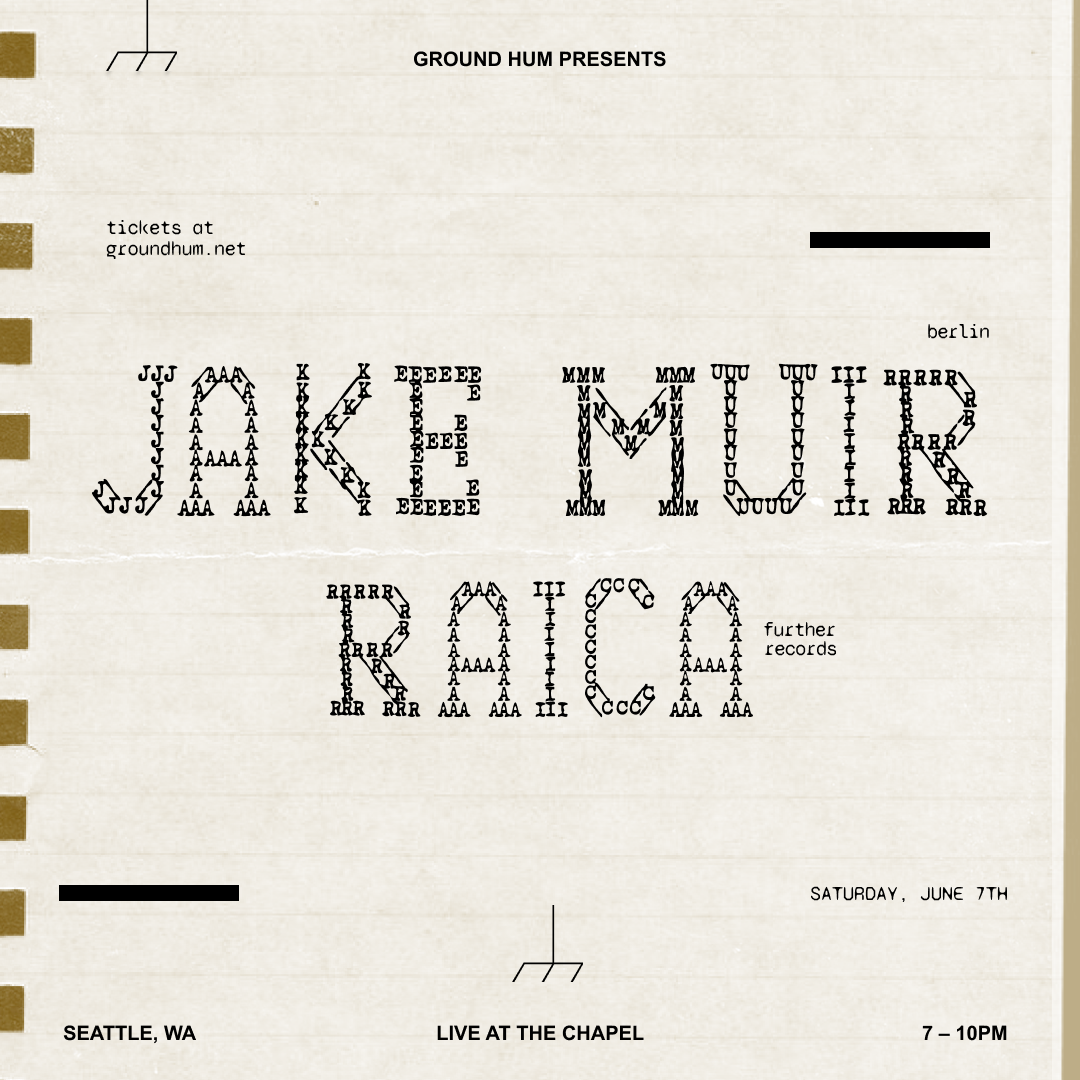 GROUND HUM PRESENTS
tickets at
groundhum.net
berlin
JAKE MUIR
RAICA
further
records
SATURDAY, JUNE 7TH
SEATTLE, WA
LIVE AT THE CHAPEL
7 – 10PM